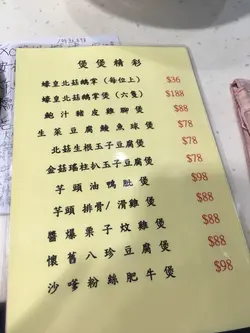 煲煲精彩
蠔皇北菇鵝掌（每位上） $36
蠔皇北菇鵝掌煲（六隻） $188
鮑汁豬皮雞腳煲 $88
生菜豆腐鯪魚球煲 $78
北菇生根玉子豆腐煲 $78
金菇瑤柱扒玉子豆腐煲 $78
芋頭油鴨腿煲 $98
芋頭排骨/滑雞煲 $88
醬爆栗子炆雞煲 $88
懷舊八珍豆腐煲 $88
沙嗲粉絲肥牛煲 $98